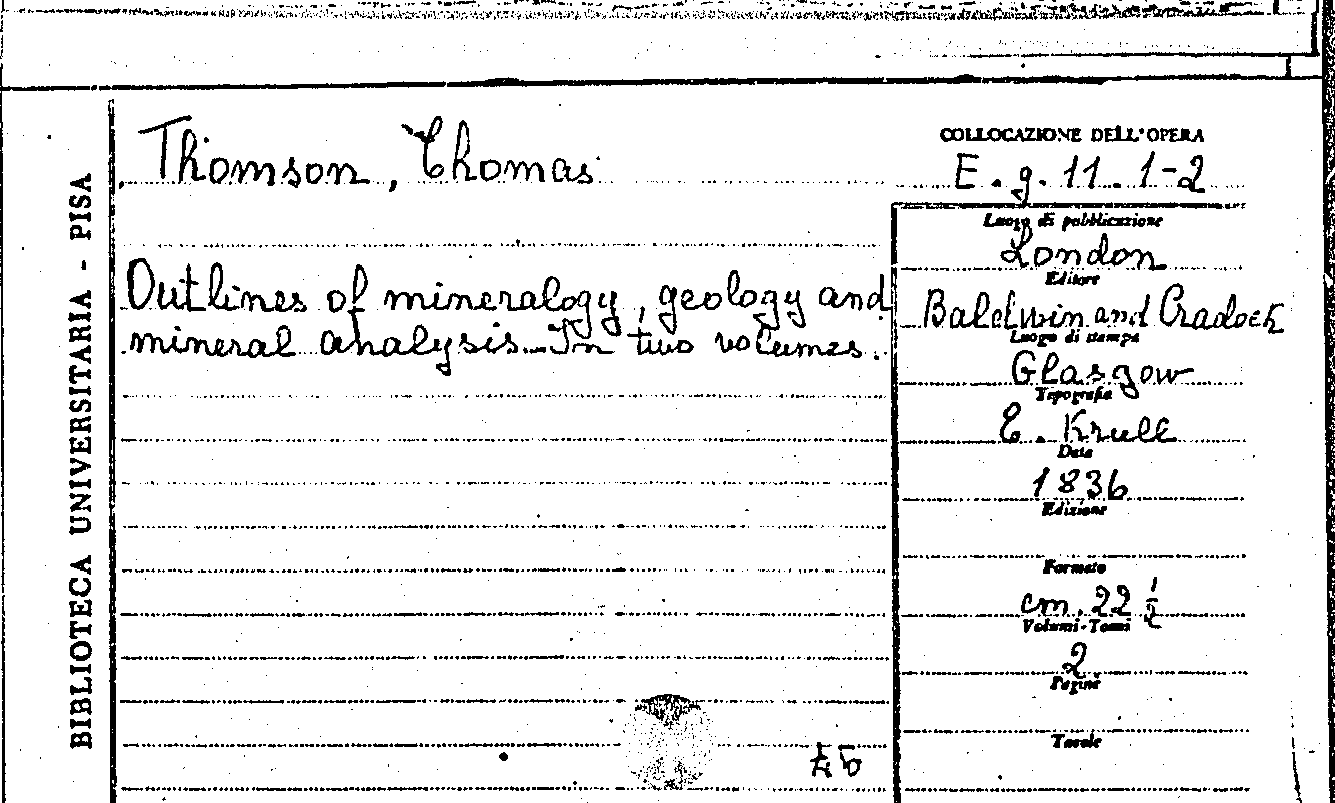 BIBLIOTECA UNIVERSITARIA - PISA
Thomson, Thomas
Outlines of mineralogy, geology and
mineral analysis. In two volumes.
COLLOCAZIONE DELL'OPERA
E. g. 11. 1-2
Luogo di pubblicazione
London
Editore
Baldwin and Cradock
Luogo di stampa
Glasgow
Tipografia
E. Krull
Data
1836
Edizione
Formato
cm. 22 1/2
Volumi-Tomi
2
Pagine
Tavole